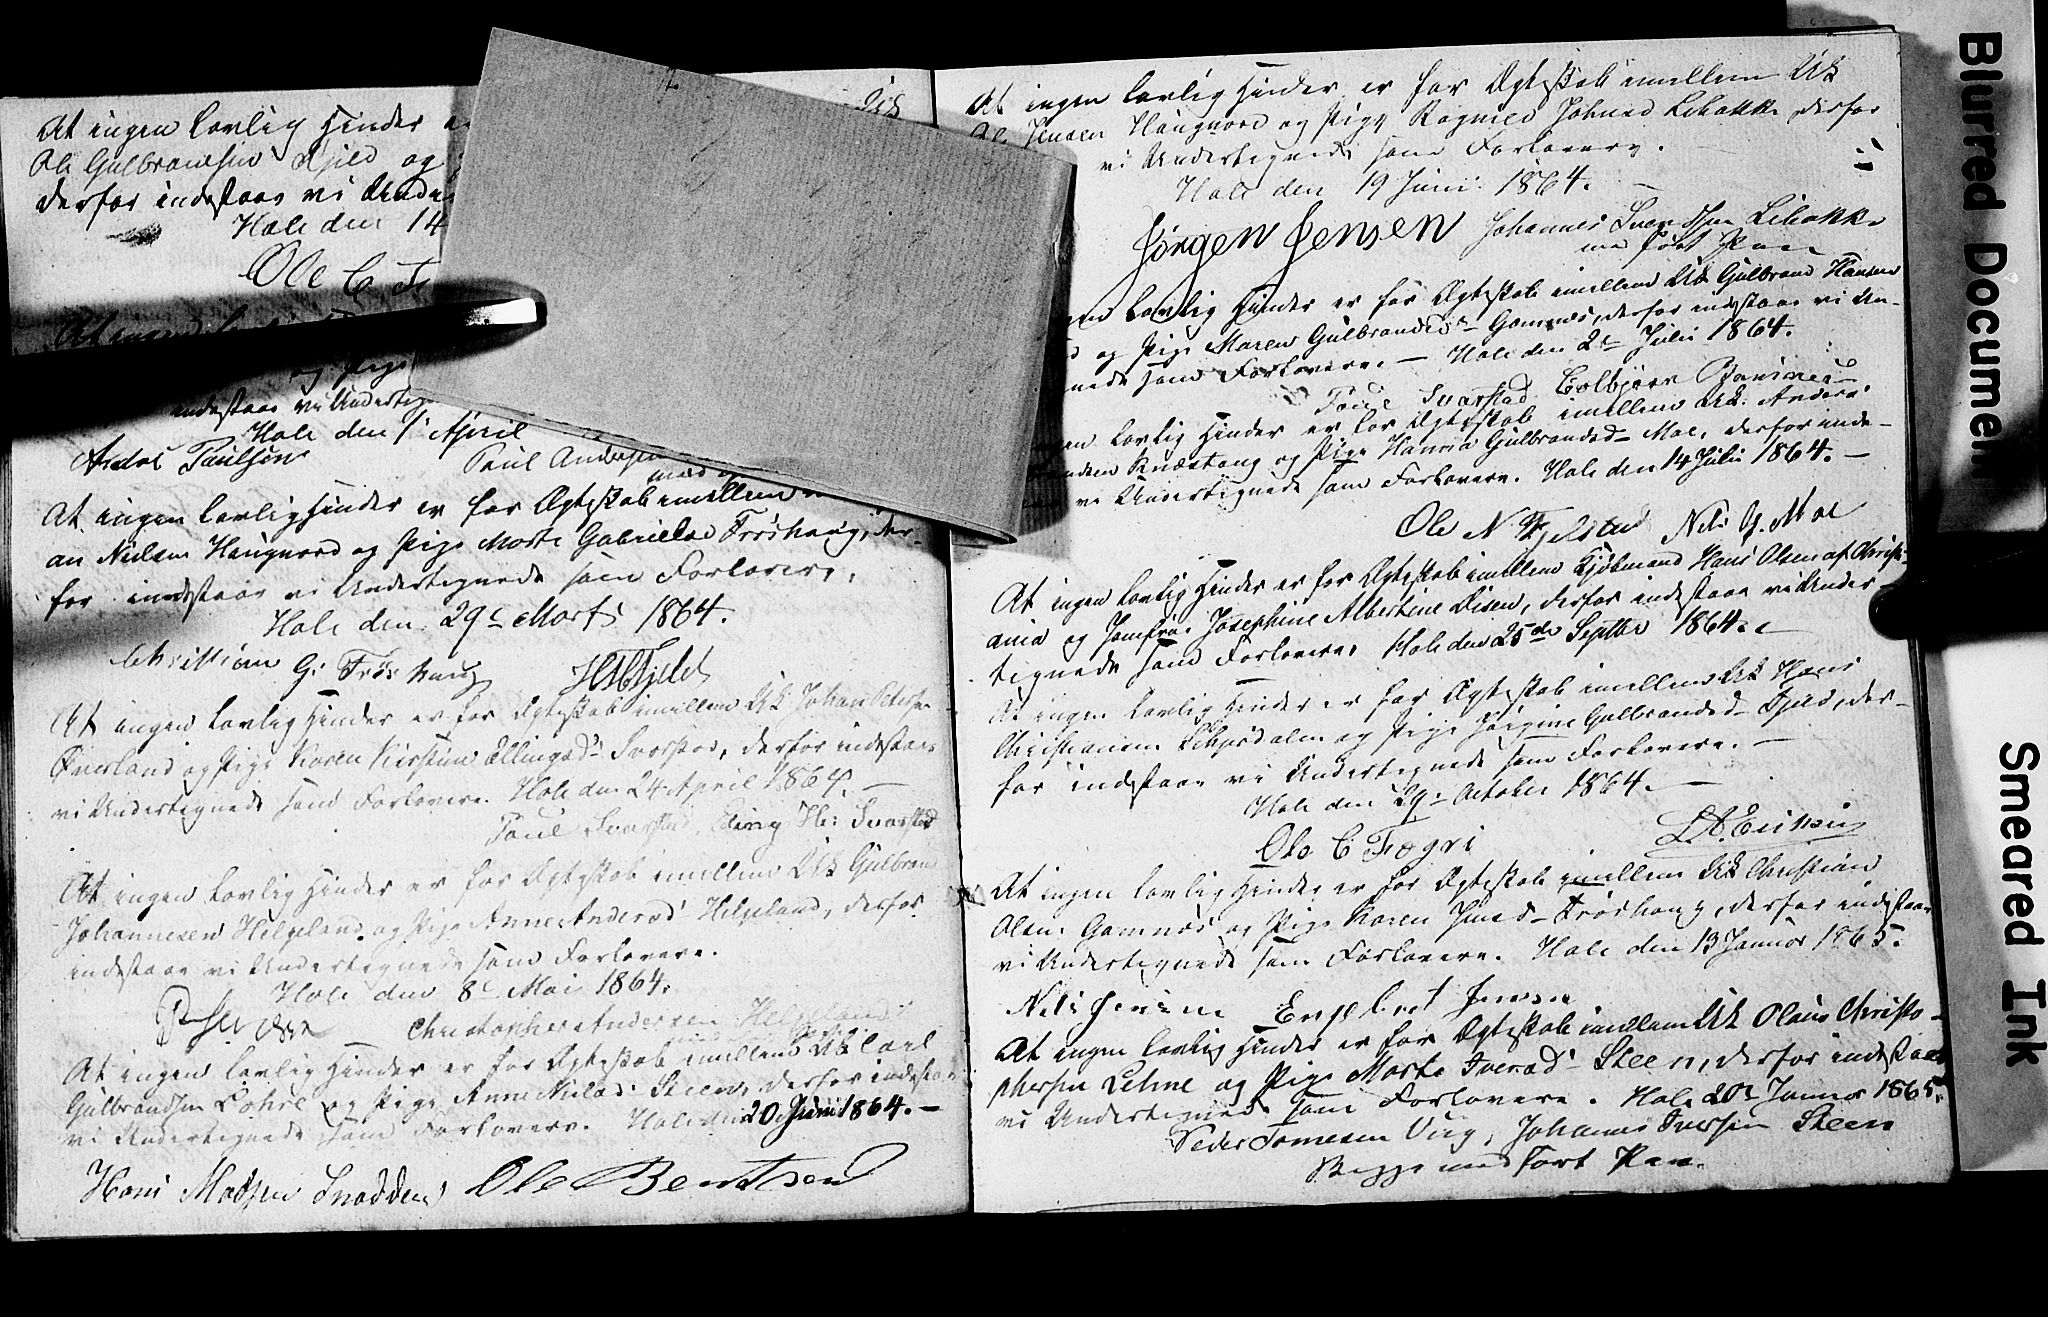 At ingen lovlig Hinder
Ole Gulbrandsen Fjeld og
derfor indestaae vi Under
Hole den 14
Ole C F
og Pige
indestaae vi Underteg
Hole den 1 April
Andrs Paulsen Paul Andersen
med
At ingen lovlig Hinder er for Ægteskab imellem
an Nielsen Haugnord og Pige Marte Gabrielsd Frøshoug, der-
for indestaae vi Undertegnede som Forlovere.
Hole den 29de Marts 1864.
Christian G. Frøshaug HHFjeld
At ingen lovlig Hinder er for Ægteskab imellem Uk Johan Peters
Øverland og Pige Karen Kirstine Ellingsd Svarstad, derfor indestaae
vi Undertegnede som Forlovere. Hole den 24 April 1864. —
Paul Svarstad, Eling Hs: Svarstad
At ingen lovlig Hinder er for Ægteskab imellem Uk Gulbran
Johannesen Helgeland og Pige Anne Andersd Helgeland, derfor
indestaae vi Undertegnede som Forlovere.
Hole den 8de Mai 1864.
Christopher Andersen Helgeland
At ingen lovlig Hinder er for Ægteskab imellem Uk Carl
Gulbrandsen Lohre og Pige Anne Nilsd Steen, derfor indestaae
vi Undertegnede som Forlovere. Hole den 20 Juni 1864. —
Hans Madsen Ole Bentsen
At ingen lovlig Hinder er for Ægteskab imellem Uk
Ole Jensen Haugnord og Pige Ragnild Johnsd Libakke derfor
vi Undertegnede som Forlovere.
Hole den 19 Juni 1864. —
Jørgen Jensen Johannes Svendsen Libakke
med ført Pen
en lovlig Hinder er for Ægteskab imellem Uk Gulbrand Hansen
og Pige Maren Gulbrandsd Gomnes, derfor indestaae vi Un-
nede som Forlovere. — Hole den 2de Juli 1864.
Svarstad Colbjørn
en lovlig Hinder er for Ægteskab imellem Uk. Anders
Knæstang og Pige Hansia Gulbrandsd Moe, derfor inde-
vi Undertegnede som Forlovere. Hole den 14 Juli 1864. —
Ole N Fjelstad Nils G. Moe
At ingen lovlig Hinder er for Ægteskab imellem Kjøbmand Hans Olsen af Christi-
ania og Jomfrue Josephine Albertine Disen, derfor indestaae vi Under-
tegnede som Forlovere. Hole den 25de Septbr 1864.
At ingen lovlig Hinder er for Ægteskab imellem Uk Hans
Christiansen og Pige Jørgine Gulbrandsd Fjeld, der-
for indestaae vi Undertegnede som Forlovere. —
Hole den 29: October 1864. —
Ole C Fægri
At ingen lovlig Hinder er for Ægteskab imellem Uk Christian
Olsen Gomnæs og Pige Karen Jensd Frøshoug, derfor indestaae
vi Undertegnede som Forlovere. Hole den 13 Januar 1865.
Nils Jensen Engebret Jensen
At ingen lovlig Hinder er for Ægteskab imellem Uk Olaus Christo-
phersen Lehne og Pige Marte Iversd Steen, derfor indestaae
vi Undertegnede som Forlovere. Hole 20de Januar 1865.
Peder Tomesen Viig, Johannes Iversen Steen
Begge med ført Pen.
Blurred Document
Smeared Ink